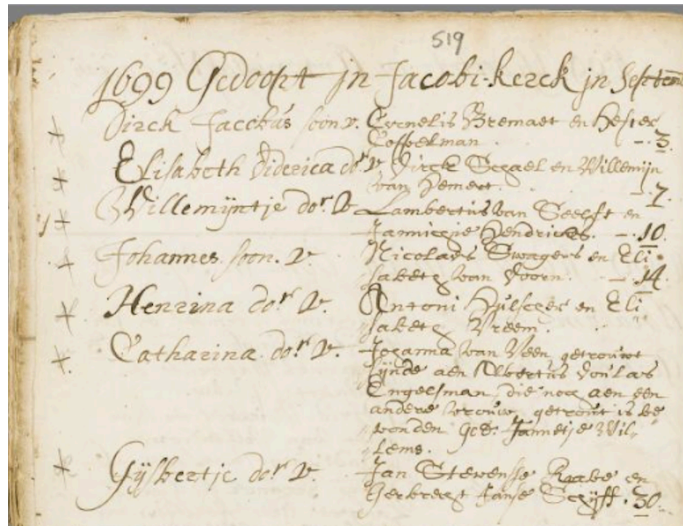 519
1699 Gedoopt in Jacobi-kerck in Septem
Dirck Jacobus soon v. Cornelis Bremaet en Hester
Coppelman. - 3.
Elisabeth Diderica dor v. Dirck Segael en Willemijn
van Hemert. - 7
Willemijntje dor v. Lambertus van Seeft en
Jannigje Hendricks. - 10.
Johannes soon. v. Nicolaes Swagers en Eli-
sabeth van Voorn. - 14.
Henrina dor v. Antoni Hulscher en Eli
sabeth Vreem.
Catharina dor v. Johanna van Veen getrouwt
sijnde aen Albertus Douglas
Engelsman, die nog aen een
andere vrouw getrout is be
vonden gen. Jannetje Wil-
lems.
Gijsbertje dor v. Jan Stevense Raabe en
Gerbregt Janse Schijff. 30.